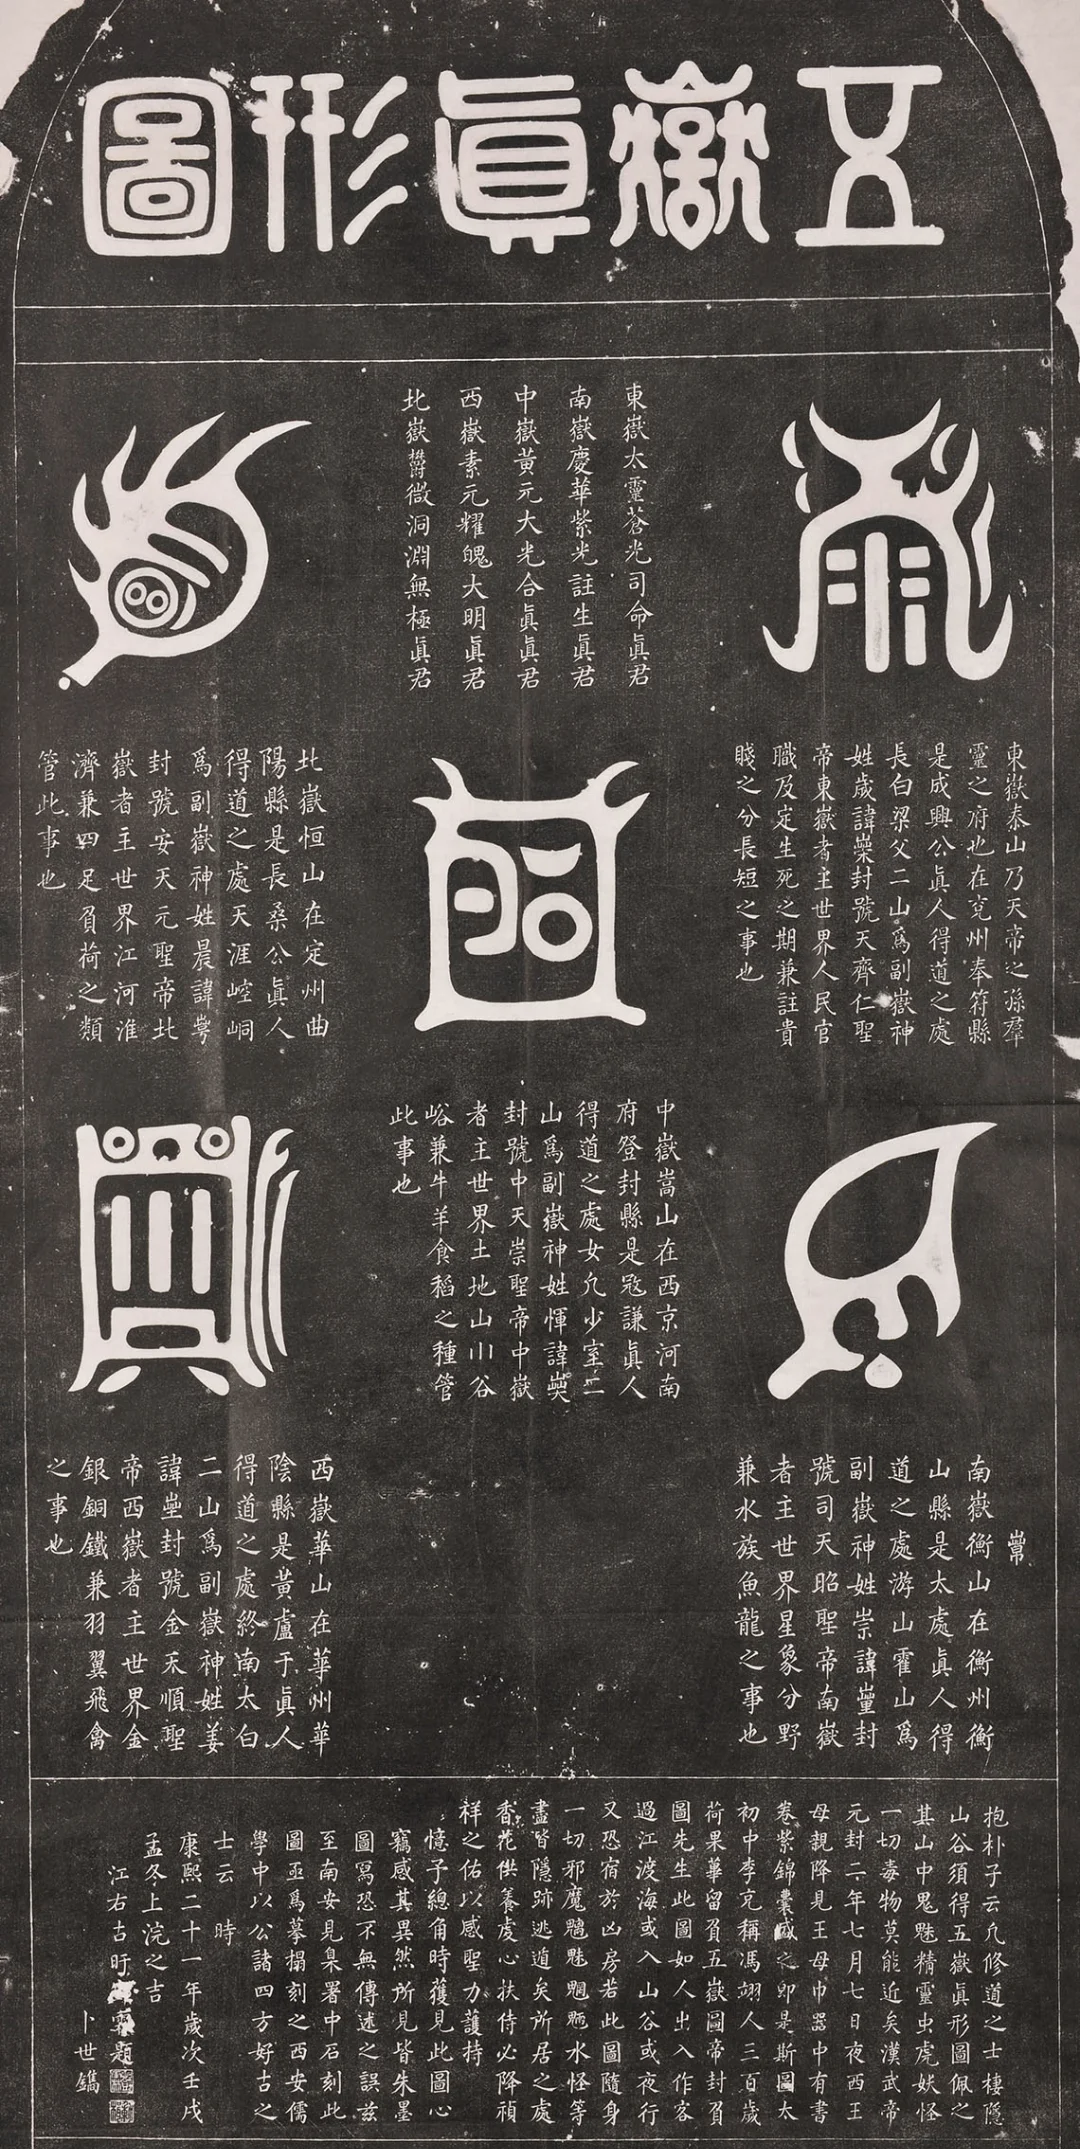 五嶽眞形圖
東嶽太靈蒼光司命眞君
南嶽慶華紫光註生眞君
中嶽黃元大光合眞眞君
西嶽素元耀魄大明眞君
北嶽鬱微洞淵無極眞君
東嶽泰山乃天帝之孫羣
靈之府也在兗州奉符縣
是成興公眞人得道之處
長白梁父二山爲副嶽神
姓歲諱崇封號天齊仁聖
帝東嶽者主世界人民官
職及定生死之期兼註貴
賤之分長短之事也
北嶽恒山在定州曲
陽縣是長桑公眞人
得道之處天涯崆峒
爲副嶽神姓晨諱
封號安天元聖帝北
嶽者主世界江河淮
濟兼四足負荷之類
管此事也
中嶽嵩山在西京河南
府登封縣是冦謙眞人
得道之處女几少室二
山爲副嶽神姓惲諱
封號中天崇聖帝中嶽
者主世界土地山川谷
峪兼牛羊食稻之種管
此事也
南嶽衡山在衡州衡
山縣是太處眞人得
道之處游山霍山爲
副嶽神姓崇諱封
號司天昭聖帝南嶽
者主世界星象分野
兼水族魚龍之事也
西嶽華山在華州華
陰縣是黃盧于眞人
得道之處終南太白
二山爲副嶽神姓姜
諱壘封號金天順聖
帝西嶽者主世界金
銀銅鐵兼羽翼飛禽
之事也
抱朴子云凡修道之士棲隱
山谷須得五嶽眞形圖佩之
其山中鬼魅精靈虫虎妖怪
一切毒物莫能近矣漢武帝
元封二年七月七日夜西王
母親降見王母巾器中有書
卷紫錦囊盛之卽是斯圖太
初中李充稱馮翊人三百歲
荷果華留負五嶽圖帝封負
圖先生此圖如人出入作客
過江渡海或入山谷或夜行
又恐宿於凶房若此圖隨身
一切邪魔魑魅魍魎水怪等
盡皆隱跡逃遁矣所居之處
香花供養虔心扶侍必降禎
祥之佑以感聖力護持
憶子總角時獲見此圖心
竊感其異然所見皆朱墨
圖寫恐不無傳述之誤茲
至南安見臬署中石刻此
圖亟爲摹搨刻之西安儒
學中以公諸四方好古之
士云 時
康熙二十一年歲次壬戌
孟冬上浣之吉
江右古盱寀題
卜世鐫